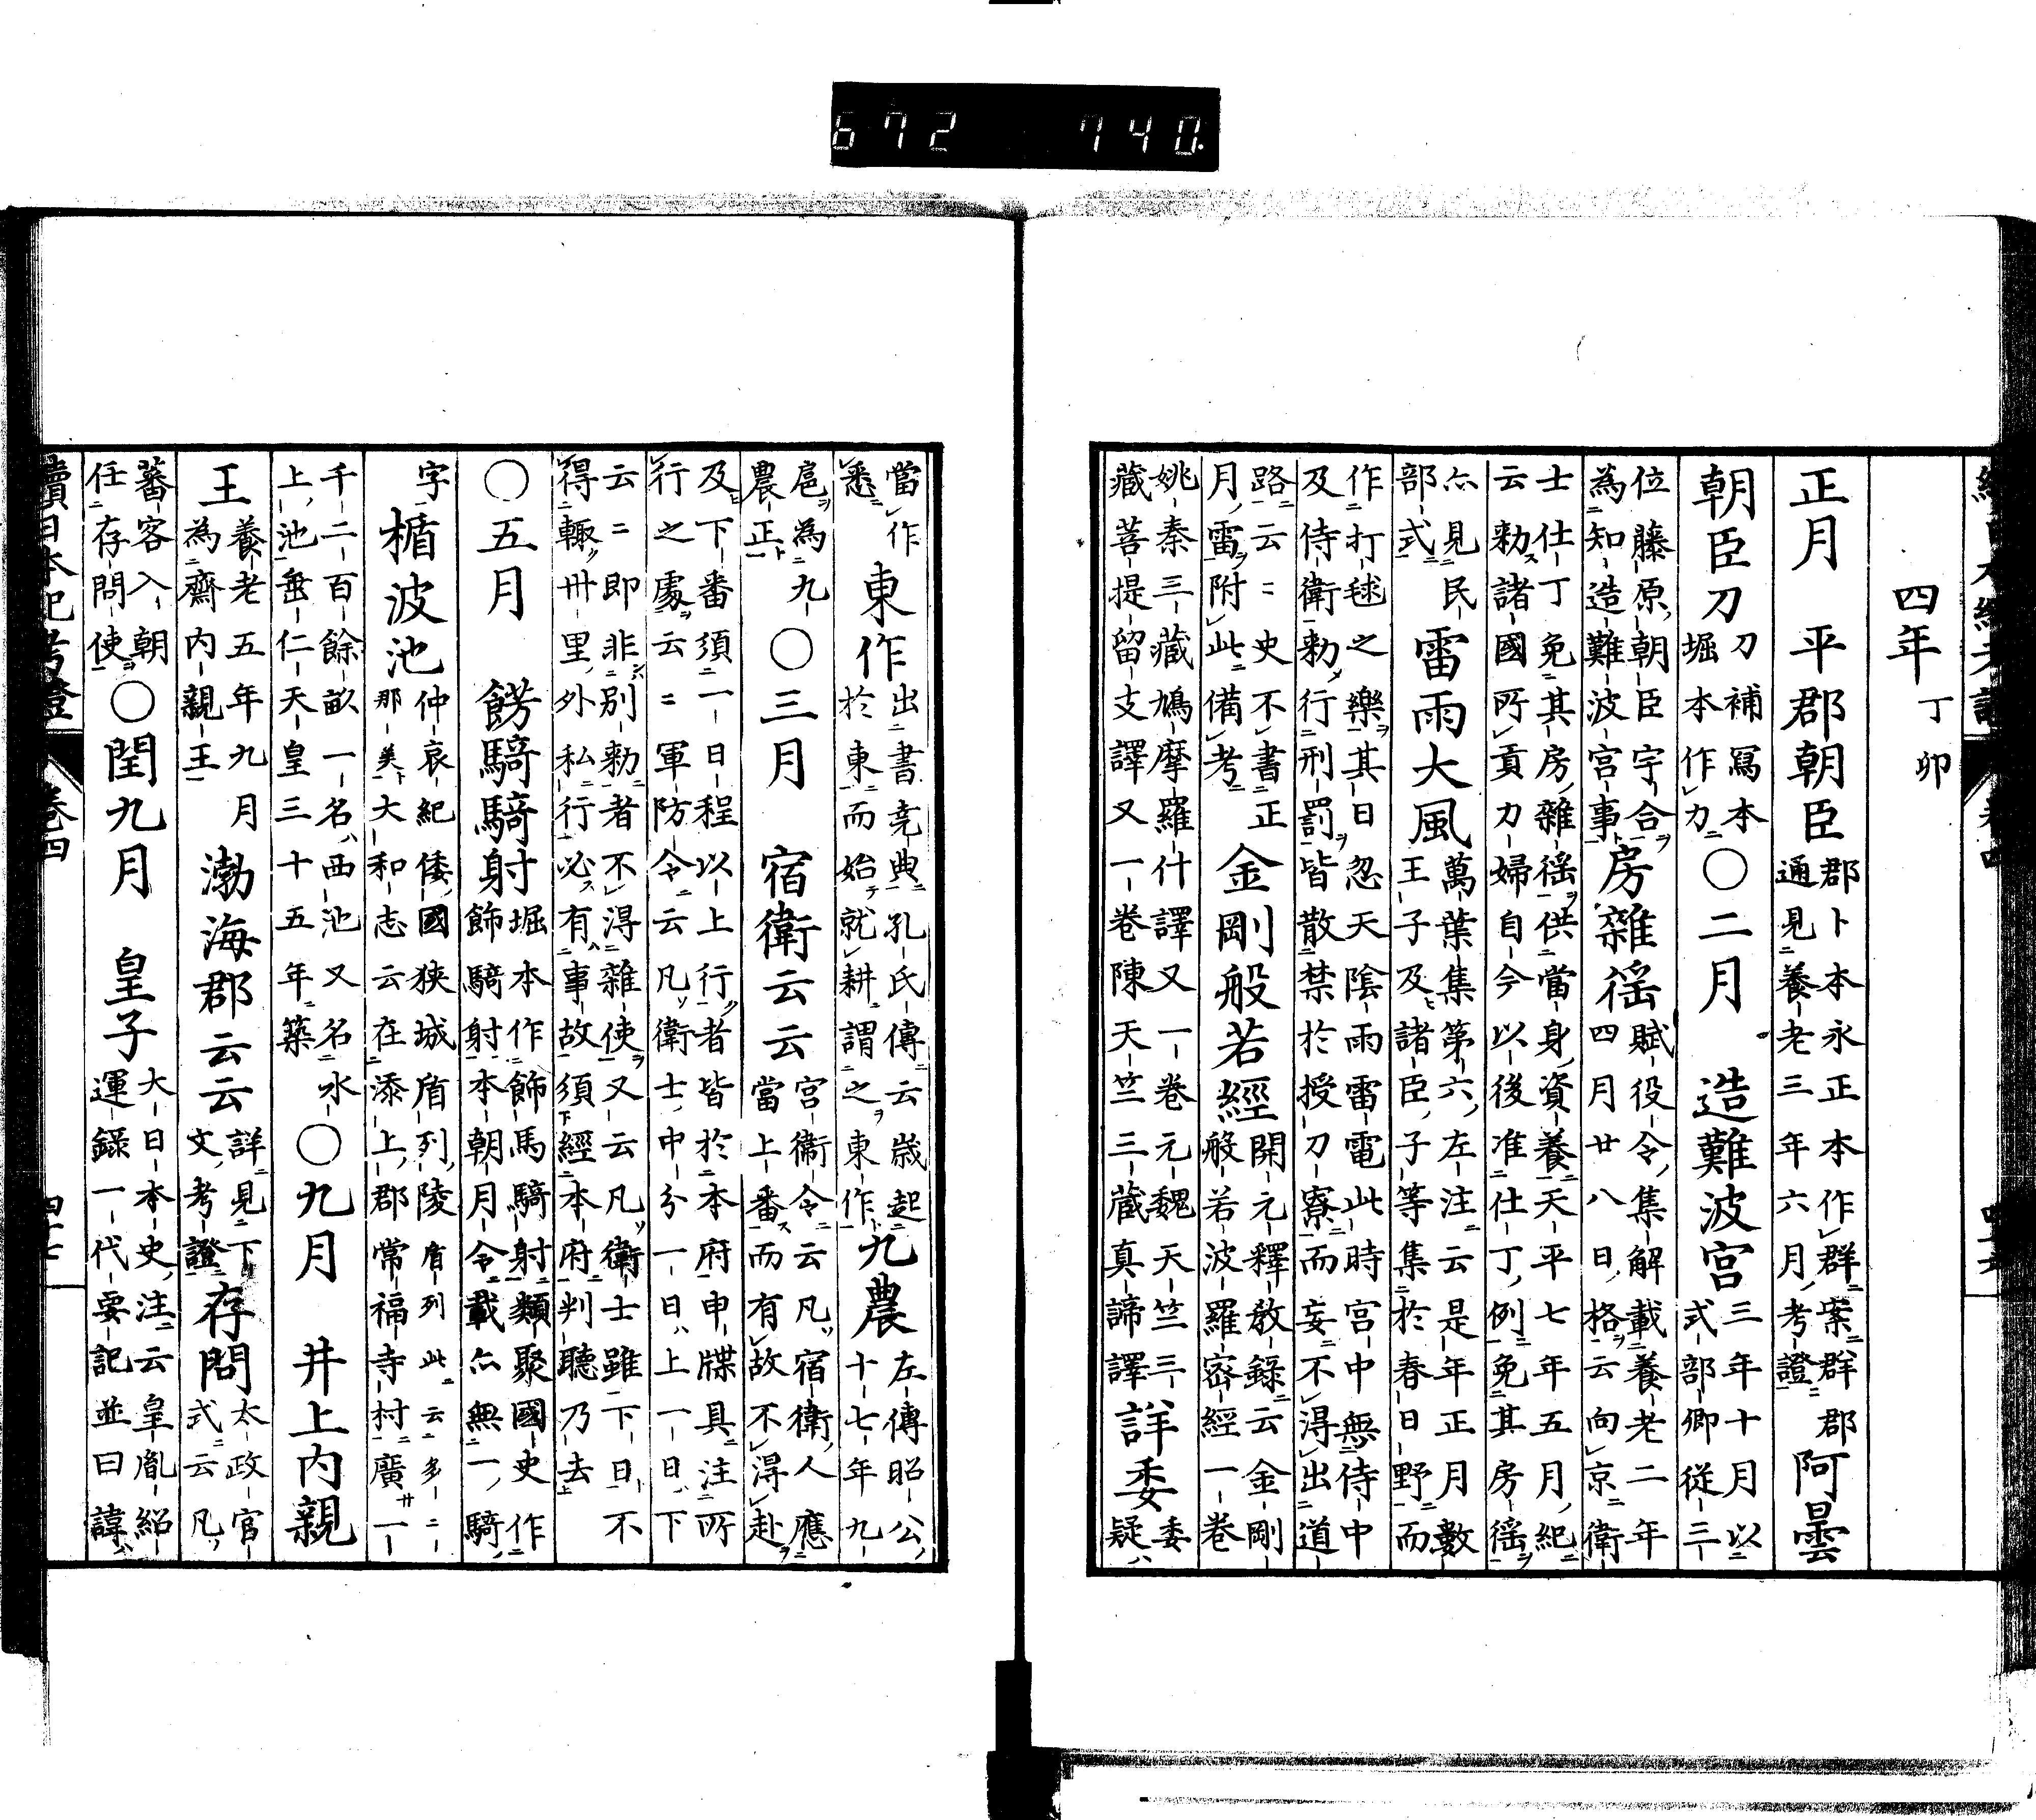 672 740.
四年丁卯
正月 平郡朝臣郡卜本永正本作群案群郡
通見養老三年六月考證阿曇
朝臣刀刀補寫本
堀本作力〇二月 造難波宮三年十月以
式部卿從三
位藤原朝臣宇合
為知造難波宮事房雜徭賦役令集解載養老二年
四月廿八日格云向京衛
士仕丁免其房雜徭供當身資養天平七年五月紀
云勅諸國所貢力婦自今以後准仕丁例免其房徭
亦見民
部式雷雨大風萬葉集第六左注云是年正月數
王子及諸臣子等集於春日野而
作打毬之樂其日忽天陰雨雷電此時宮中無侍中
及侍衛勅行刑罰皆散禁於授刀寮而妄不得出道
路云二史不書正
月雷附此備考金剛般若經開元釋教錄云金剛
般若波羅密經一卷
姚秦三藏鳩摩羅什譯又一卷元魏天竺三
藏菩提留支譯又一卷陳天竺三藏真諦譯詳委委
疑
當作
悉東作出書堯典孔氏傳云歲起
於東而始就耕謂之東作九農左傳昭公
十七年九
扈為九
農正〇三月 宿衛云云宮衞令云凡宿衛人應
當上番而有故不得赴
及下番須一日程以上行者皆於本府申牒具注所
行之處云二軍防令云凡衛士中分一日上一日下
云二即非別勅者不得雜使又云凡衛士雖下日不
得輙卅里外私行必有事故須經本府判聽乃去
〇五月 餝騎騎射堀本作飾馬騎射類聚國史作
飾騎射本朝月令載亦無一騎
字楯波池仲哀紀倭國狹城盾列陵盾列此云多二
那美大和志云在添上郡常福寺村廣一
千二百餘畝一名西池又名水
上池垂仁天皇三十五年築〇九月 井上內親
王養老五年九月
為齋內親王渤海郡云云詳見下
文考證存問太政官
式云凡
蕃客入朝
任存問使〇閏九月 皇子大日本史注云皇胤紹
運錄一代要記並曰諱
續日本紀考證 卷四 四十七